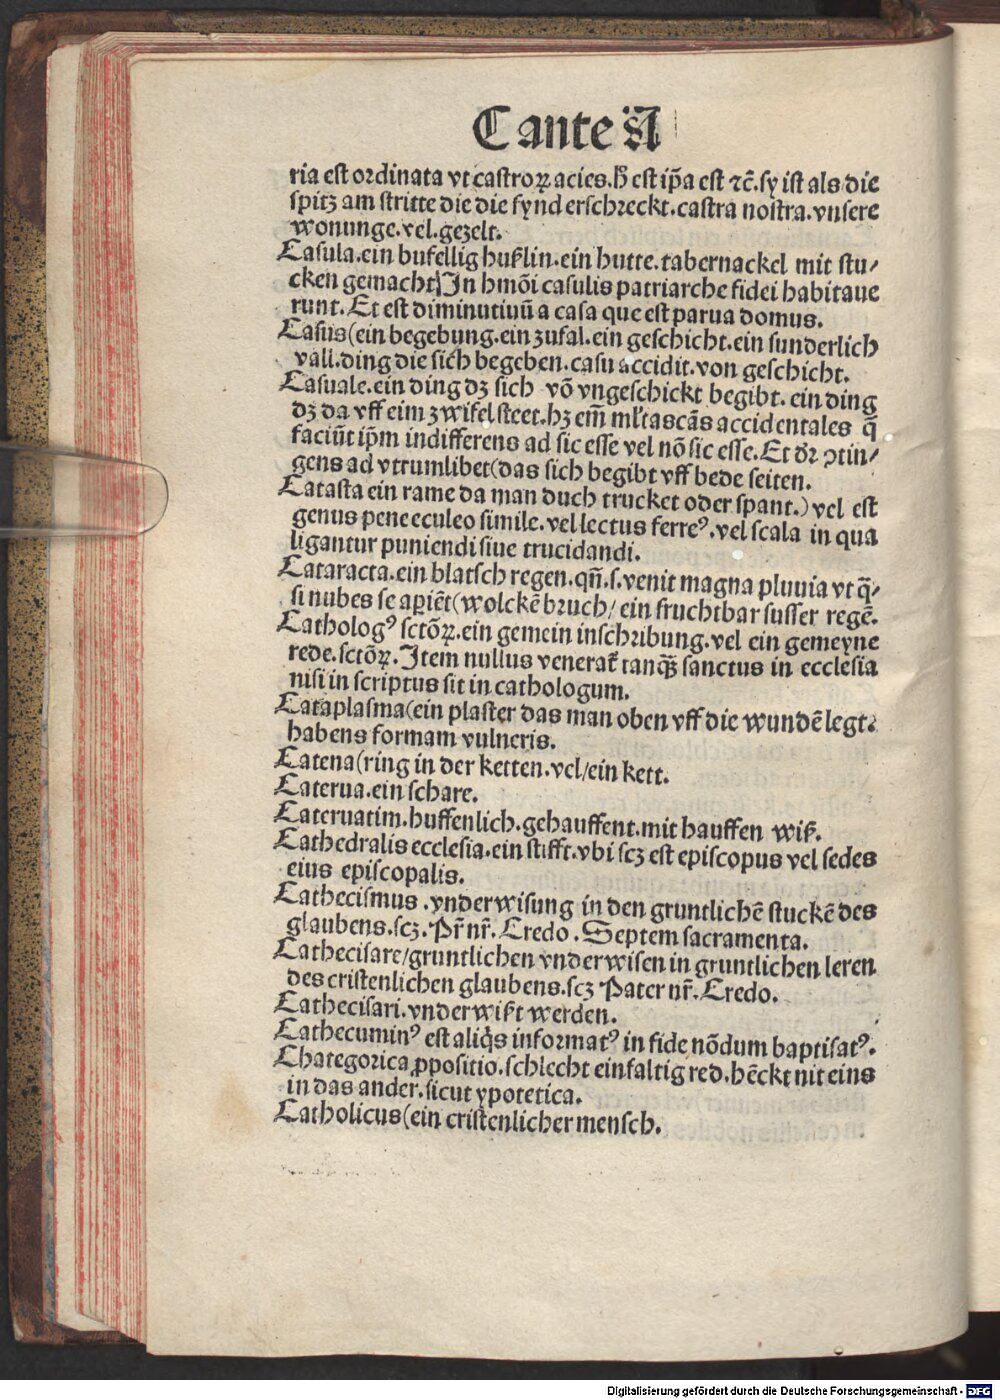 C ante A
ria est ordinata vt castroꝝ acies. hꝰ est ip̃a est ⁊c̃. sy ist als die
spitz am stritte die die fynd erschreckt. castra nostra. vnsere
wonunge. vel. gezelt.
Casula. ein bufellig huſlin. ein hutte. tabernackel mit stu/
cken gemacht) In hmõi casulis patriarche fidei habitaue
runt. Et est diminutiuũ a casa que est parua domus.
Casus(ein begebung. ein zufal. ein geschicht. ein sunderlich
vall. ding die sich begeben. casu accidit. von geschicht.
Casuale. ein ding dz sich võ vngeschickt begibt. ein ding
dz da vff eim zwifel steet. hz em̃ ml'tas cãs accidentales q̃
faciũt ip̃m indifferens ad sic esse vel nõ sic esse. Et dr̃ ↄtin/
gens ad vtrumlibet(das sich begibt vff bede seiten.
Catasta ein rame da man duch trucket oder spant.) vel est
genus pene eculeo simile. vel lectus ferreꝰ. vel scala in qua
ligantur puniendi siue trucidandi.
Cataracta. ein blatsch regen. qñ. s. venit magna pluuia vt q̃/
si nubes se apiẽt(wolckẽ bruch/ ein fruchtbar susser regẽ.
Cathologꝰ sctõꝝ. ein gemein inschribung. vel ein gemeyne
rede. sctõꝝ. Item nullus venerat̃ tanq̃ sanctus in ecclesia
nisi in scriptus sit in cathologum.
Cataplasma(ein plaster das man oben vff die wundẽ legt.
habens formam vulneris.
Catena(ring in der ketten. vel/ein kett.
Caterua. ein schare.
Cateruatim. huffenlich. gehauffent. mit hauffen wiß.
Cathedralis ecclesia. ein stifft. vbi scꝫ est episcopus vel sedes
eius episcopalis.
Cathecismus. vnderwisung in den gruntlichẽ stuckẽ des
glaubens. scꝫ. Pr̃ nr̃. Credo. Septem sacramenta.
Cathecisare/gruntlichen vnderwisen in gruntlichen leren
des cristenlichen glaubens. scꝫ Pater nr̃. Credo.
Cathecisari. vnderwißt werden.
Cathecuminꝰ est aliq̇s informatꝰ in fide nõdum baptisatꝰ.
Chategorica ꝓpositio. schlecht einfaltig red. hẽckt nit eins
in das ander. sicut ypotetica.
Catholicus(ein cristenlicher mensch.
Digitalisierung gefördert durch die Deutsche Forschungsgemeinschaft - DFG